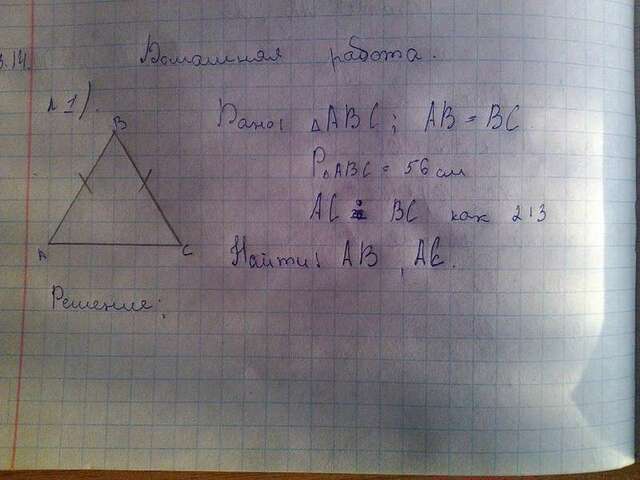 3.14.
Домашняя работа.
№1).
B
Дано: △ABC; AB = BC
P△ABC = 56 см
AC : BC как 2:3
A
C
Найти: AB, AC.
Решение: